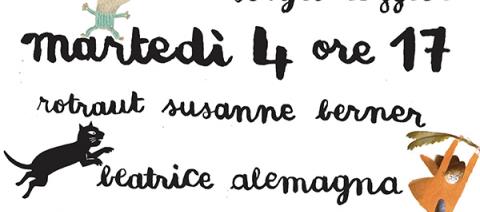 martedì 4 ore 17
rotraut susanne berner
beatrice alemagna